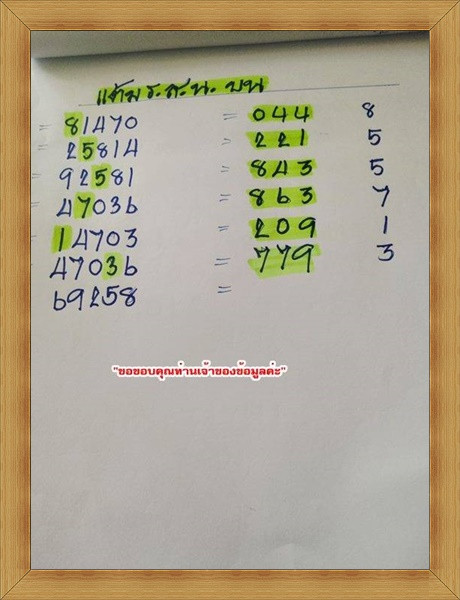 แต้ม ร.ส.น. บน
= 81470 = 044 8
25814 = 221 5
= 92581 = 843 5
47036 = 863 7
= 14703 = 209 1
47036 = 779 3
69258 =
"ขอขอบคุณท่านเจ้าของข้อมูลค่ะ"